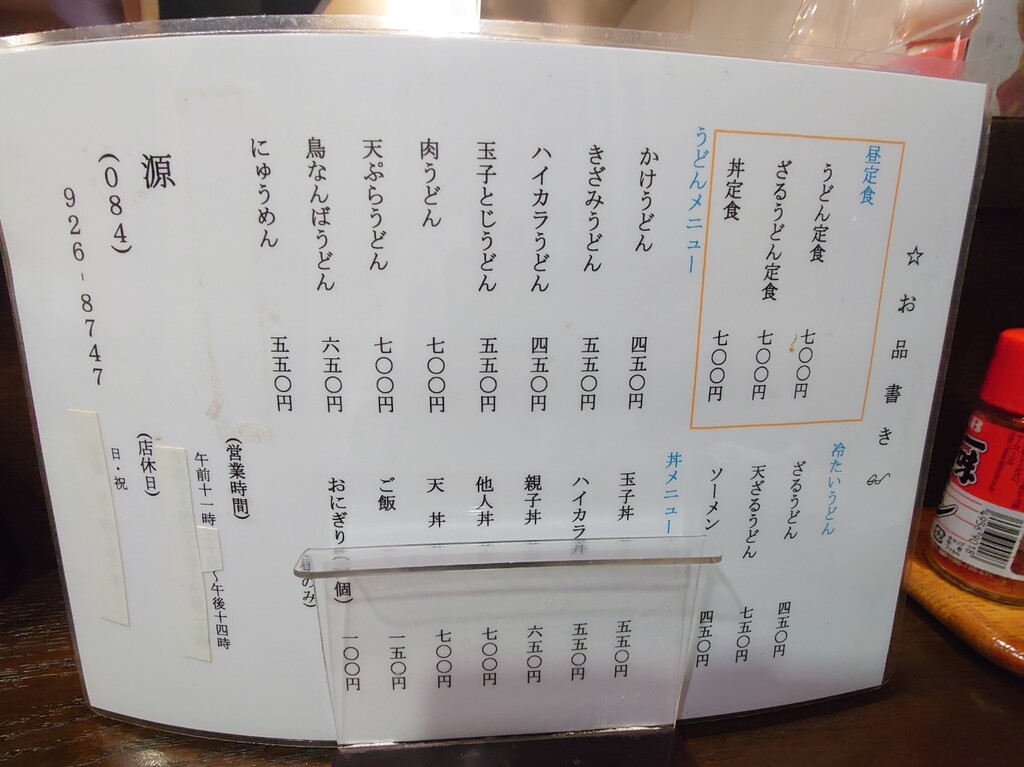 ☆お品書き
昼定食
うどん定食 七〇〇円
ざるうどん定食 七〇〇円
丼定食 七〇〇円
うどんメニュー
かけうどん 四五〇円
きざみうどん 五五〇円
ハイカラうどん 四五〇円
玉子とじうどん 五五〇円
肉うどん 七〇〇円
天ぷらうどん 七〇〇円
鳥なんばうどん 六五〇円
にゅうめん 五五〇円
冷たいうどん
ざるうどん 四五〇円
天ざるうどん 七五〇円
ソーメン 四五〇円
丼メニュー
玉子丼 五五〇円
ハイカラ丼 五五〇円
親子丼 六五〇円
他人丼 七〇〇円
天丼 七〇〇円
ご飯 一五〇円
おにぎり 個) 一〇〇円
昼のみ)
(営業時間)
午前十一時 ～午後十四時
(店休日)
日・祝
源
(084)
926-8747
一味